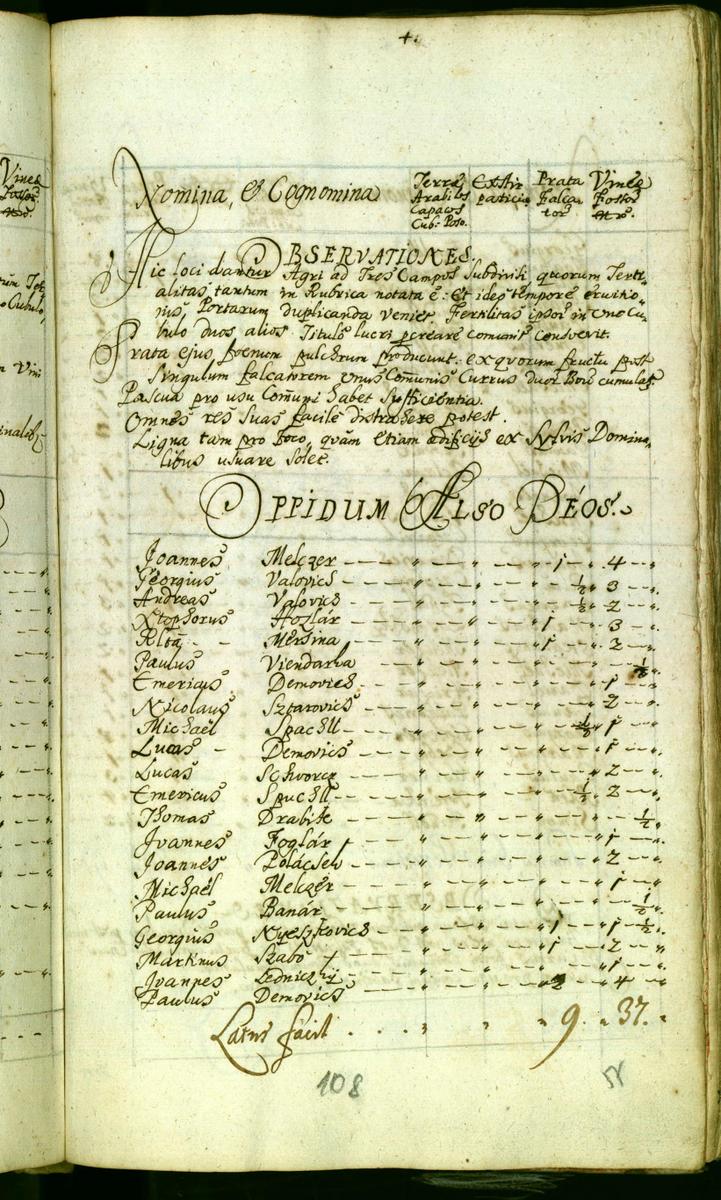 Nomina, & Cognomina
Terræ Arabilis Capaces Cub: Poso.
Exstirpaticiæ
Prata Falcator
Vineæ Fossor
OBSERVATIONES.
Hic loci dantur Agri ad Tres Campos Subdivisi quorum Terti-
alitas tantum in Rubrica notata ē: Et ideo tempore eruitio-
nis, Portarum duplicanda veniet. Fertilitas ipsor in uno Cu-
bulo duos alios Titulo lucri pcreare comunit Consvevit.
Prata ejus, foenum pulchrum producunt. ex quorum fructu post
Singulum falcatorem unus Coмunis Currus duor Bou cumulat
Pascua pro usu Coмuni habet Sufficientia.
Omnes res Suas facile distrahere potest.
Ligna tam pro foco, quàm etiam ædificijs ex Sylvis Domina-
libus usuare Solet.
OPPIDUM ALSO DÉOS.
Joannes Melczer 1 4
Georgius Valovics ½ 3
Andreas Valovics ½ 2
Xtophorus Hozlár 1 3
Rltã Mersina 1 2
Paulus Viendarha ½
Emericus Demovics 1
Nicolaus Sztarovics 2
Michaël Spachll ½ 1
Lucas Demovics 1
Lucas Schvorcz 2
Emericus Spuchll ½ 2
Thomas Drabite ½
Joannes Foglár 1
Joannes Polácsek 2
Michaël Melczér 1
Paulus Banár ½
Georgius Nyeszkovics 1 1 ½
Martinus Szabó 1 2
Joannes Ledniczky 1
Paulus Demovics 2 4
Latus facit 9 37.
108